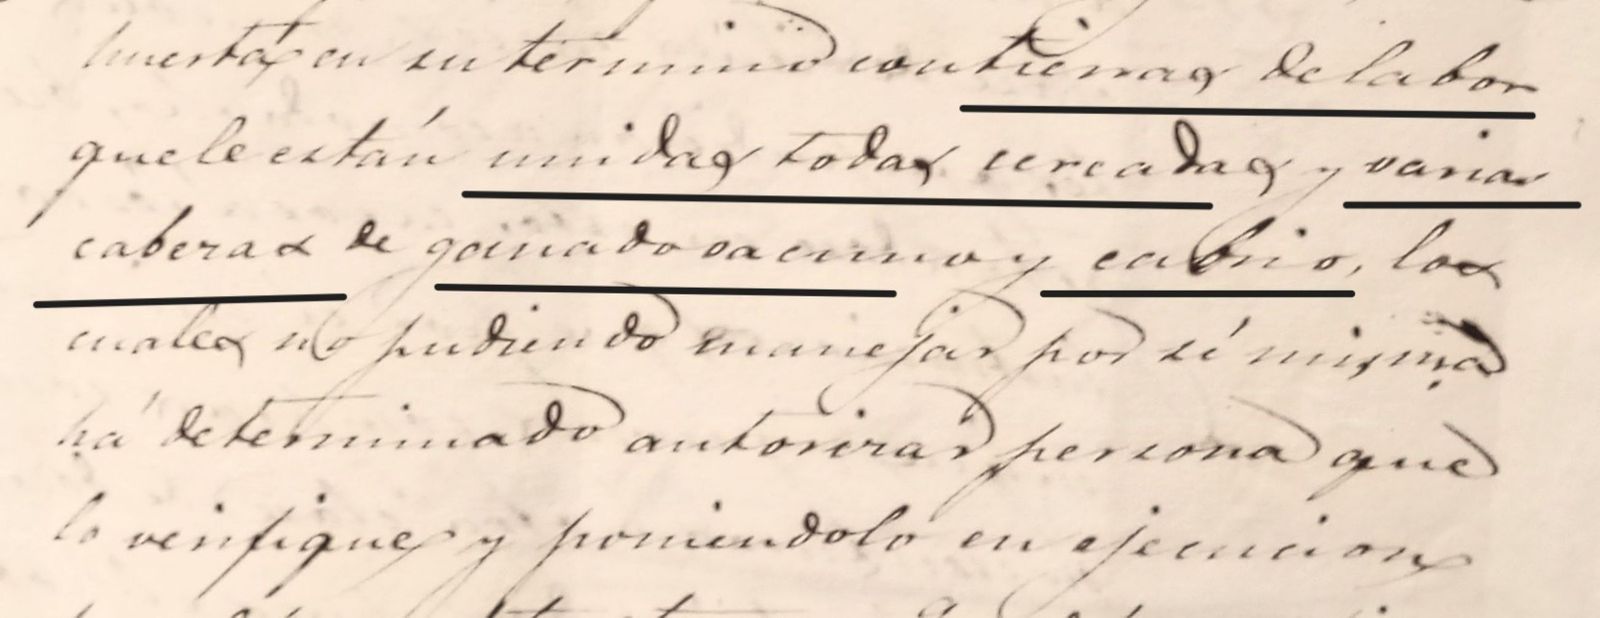 huerta, en su termino con tierras de labor
que le están unidas todas cercadas y varias
caberas de ganado vacuno y cabrio, los
cuales no pudiendo manejar por sí misma
há determinado autorirar persona que
lo verifique, y poniendolo en ejecucion